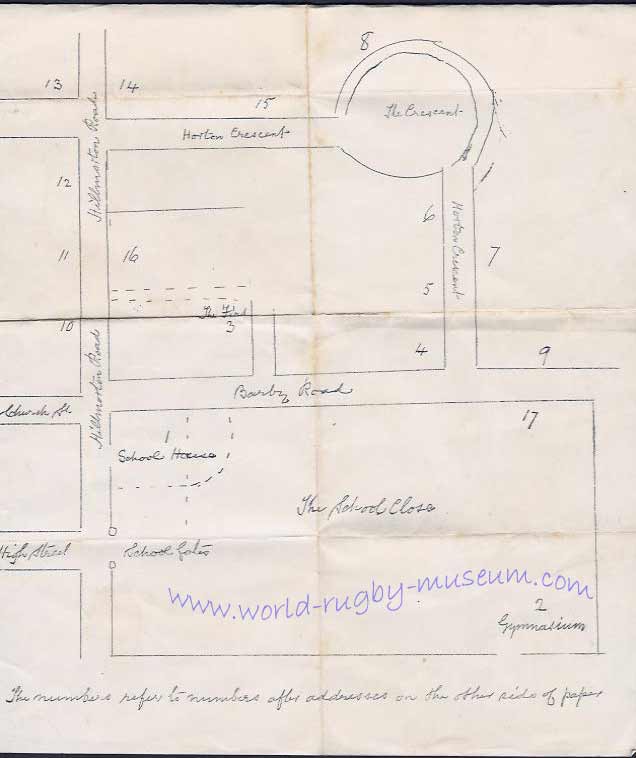 8
13
14
15
The Crescent
Horton Crescent
Hillmorton Road
12
6
Horton Crescent
7
11
16
5
3
10
Hillmorton Road
4
9
Barby Road
Church St.
17
1
School House
The School Close
High Street
School Gates
www.world-rugby-museum.com
2
Gymnasium
The numbers refer to numbers after addresses on the other side of paper